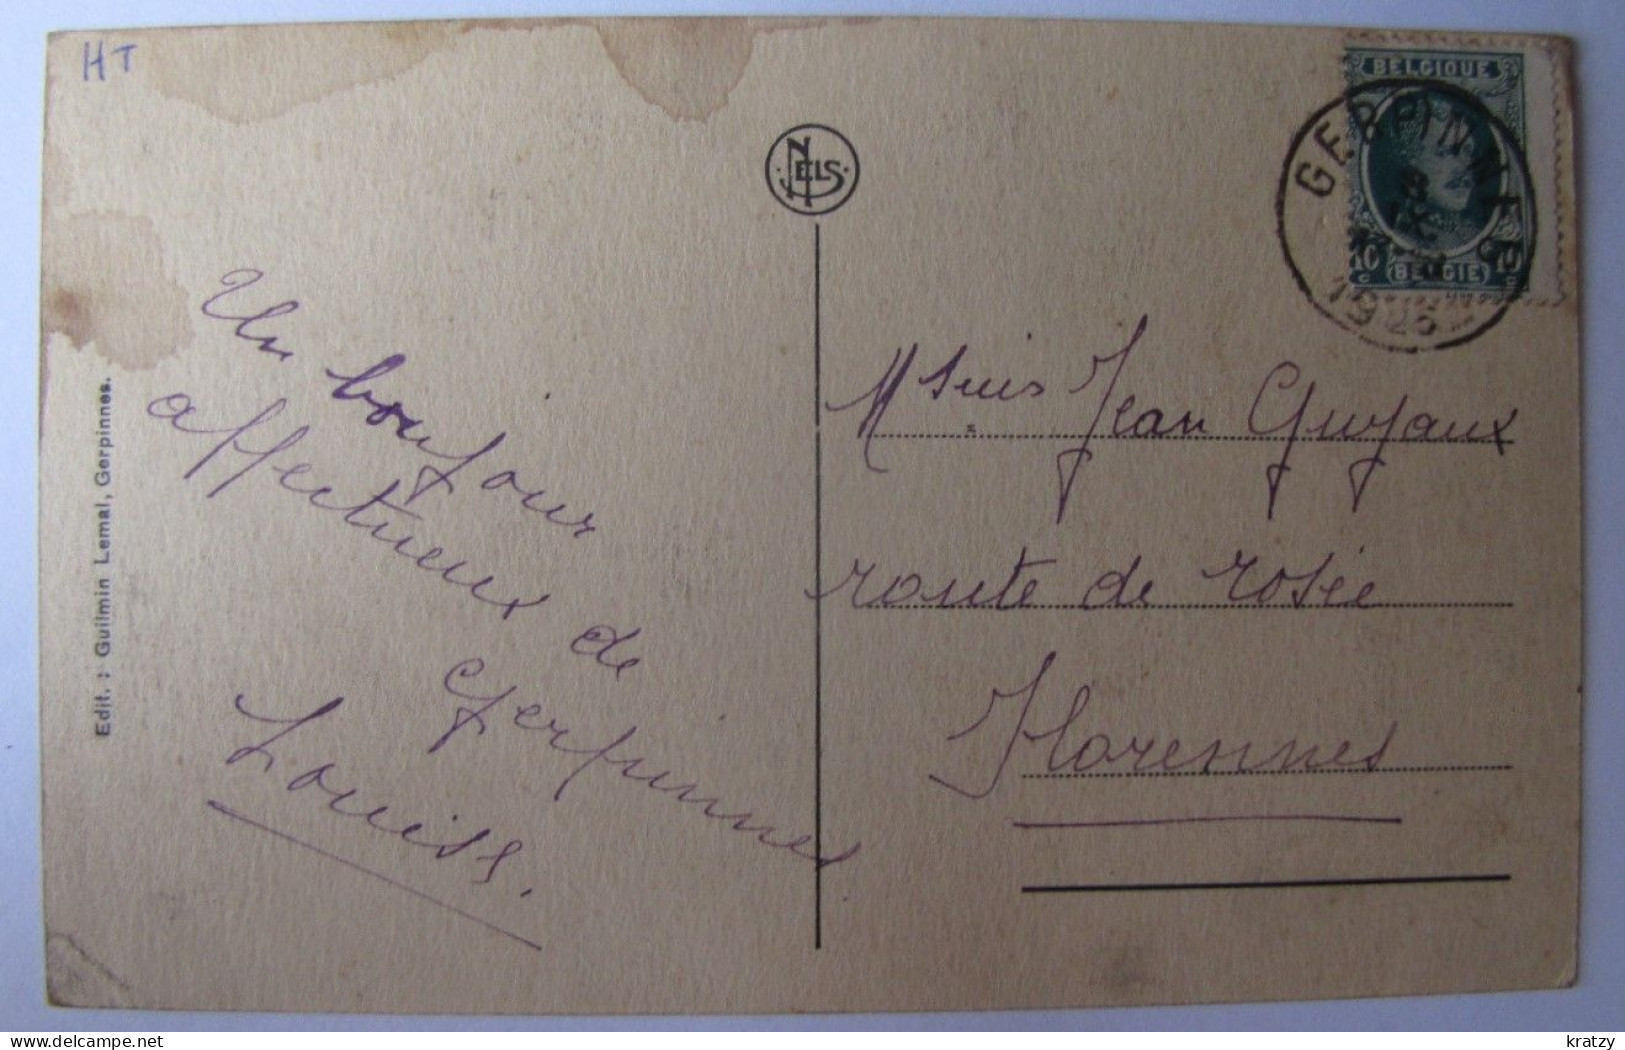 HT
NELS
BELGIQUE
BELGIË
GERPINNES
Un bonjour
affectueux de
Gerpinnes
Louise.
Edit. : Guilmin Lemal, Gerpinnes.
Jean Guyaux
route de rosée
Florennes
kratzy